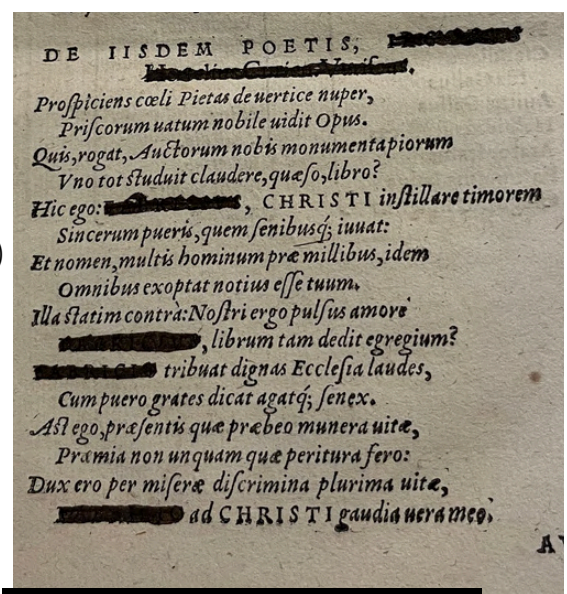 DE IISDEM POETIS,
Proſpiciens cœli Pietas de uertice nuper,
Priſcorum uatum nobile uidit Opus.
Quis, rogat, Auctorum nobis monumenta piorum
Vno tot ſtuduit claudere, quæſo, libro?
Hic ego: , CHRISTI inſtillare timorem
Sincerum pueris, quem ſenibusq́; iuuat:
Et nomen, multis hominum præ millibus, idem
Omnibus exoptat notius eſſe tuum.
Illa ſtatim contrà: Noſtri ergo pulſus amore
, librum tam dedit egregium?
tribuat dignas Eccleſia laudes,
Cum puero grates dicat agatq́; ſenex.
Aſt ego, præſentis quæ præbeo munera uitæ,
Præmia non unquam quæ peritura fero:
Dux ero per miſeræ diſcrimina plurima uitæ,
ad CHRISTI gaudia uera meo.
AV